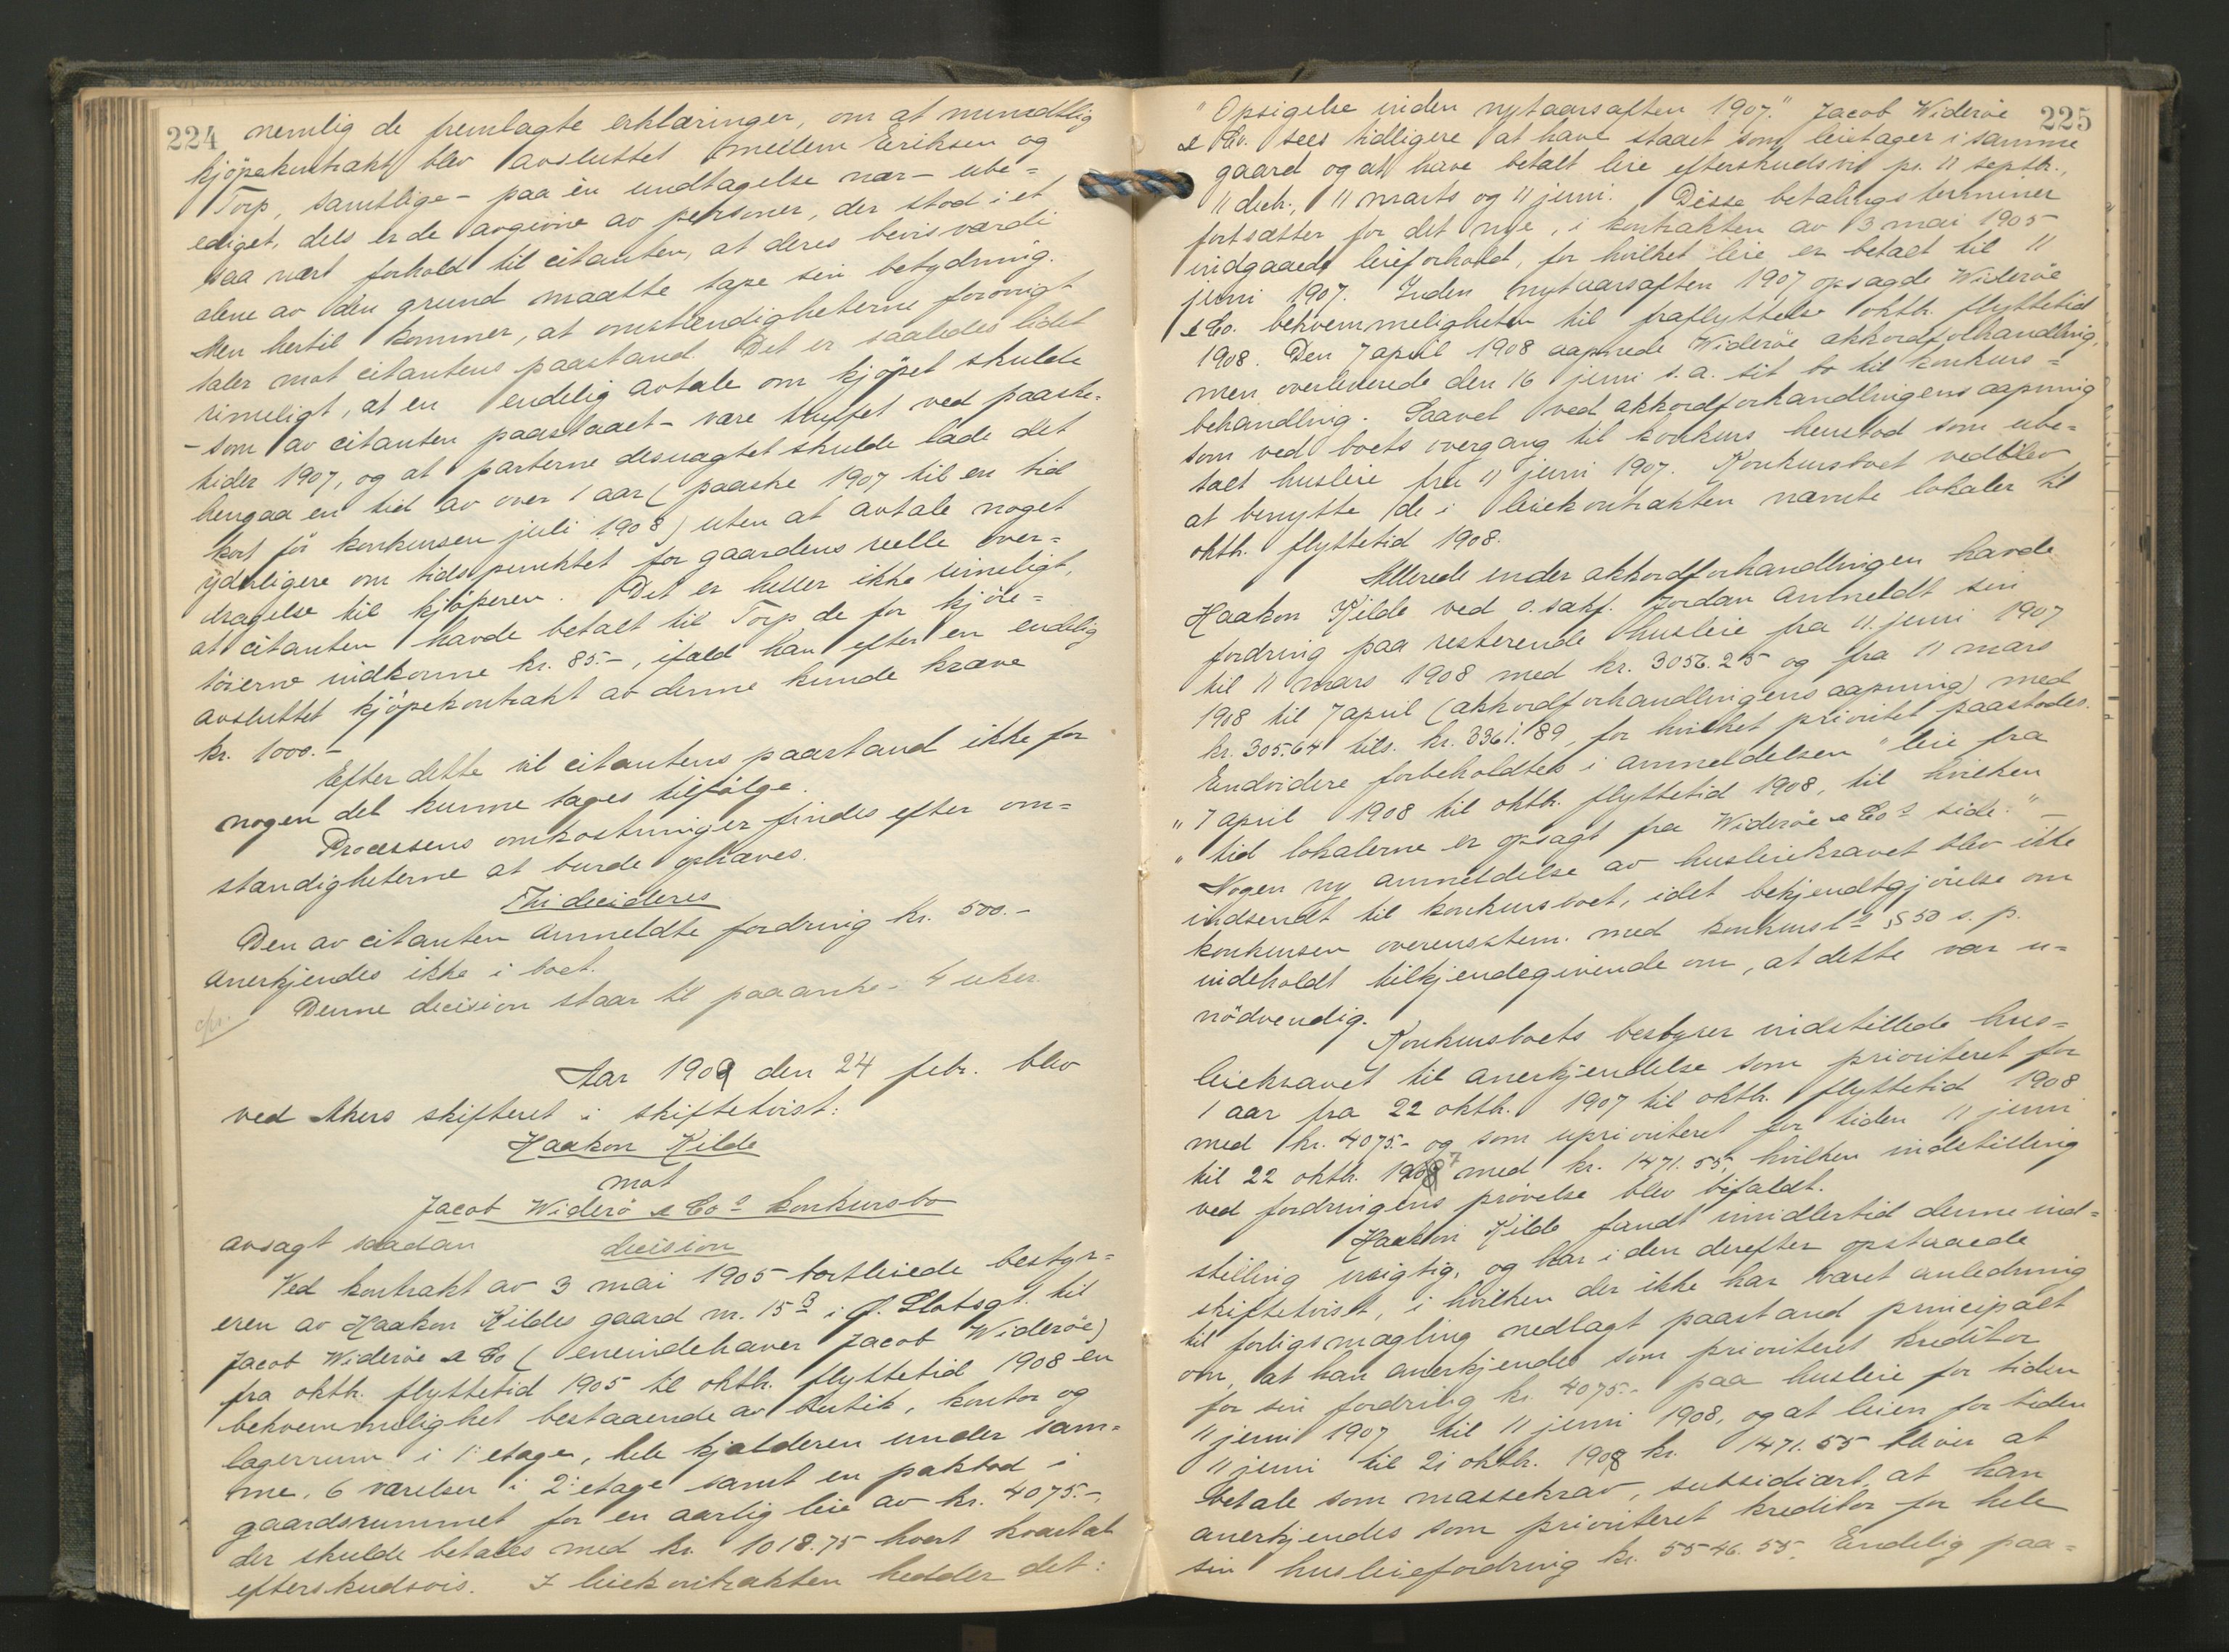 224 nemlig de fremlagte erklæringer, om at mundtlig
kjöpekontrakt blev avsluttet mellem Eriksen og
Torp, samtlige - paa én undtagelse nær - ube=
ediget, dels er de avgivne av personer, der stod i et
saa nært forhold til citanten, at deres bevisværdi
alene av den grund maatte tape sin betydning.
Men hertil kommer, at omstændigheterne forövrigt
taler mot citantens paastand. Det er saaledes lidet
rimeligt, at en endelig avtale om kjöpet skulde
- som av citanten paastaaet - være truffet ved paaske-
tider 1907, og at parterne desuagtet skulde lade det
hengaa en tid av over 1 aar (paaske 1907 til en tid
kort för konkursen juli 1908) uten at avtale noget
yderligere om tidspunktet for gaardens reelle over=
dragelse til kjöperen. Det er heller ikke rimeligt,
at citanten havde betalt til Torp de for kjöre=
töierne indkomne kr. 85.-, ifald han efter en endelig
avsluttet kjöpekontrakt av denne kunde kræve
kr. 1000.-
Efter dette vil citantens paastand ikke for
nogen del kunne tages tilfölge.
Processens omkostninger findes efter om=
stændigheterne at burde ophæves.
Thi decideres
Den av citanten anmeldte fordring kr. 500.-
anerkjendes ikke i boet.
Denne decision staar til paaanke - 4 uker.
Aar 1909 den 24 febr. blev
ved Akers skifteret i skiftetvist:
Haakon Kilde
mot
Jacob Widerö & Co's konkursbo
avsagt saadan decision
Ved kontrakt av 3 mai 1905 bortleiede bestyr=
eren av Haakon Kildes gaard nr. 15 B i Slotsgt. til
Jacob Wideröe & Co (eneindehaver Jacob Wideröe)
fra oktbr. flyttetid 1905 til oktbr. flyttetid 1908 en
bekvemmelighet bestaaende av butik, kontor og
lagerrum i 1' etage, hele kjælderen under sam=
me, 6 værelser i 2' etage samt en pakbod i
gaardsrummet for en aarlig leie av kr. 4075.-,
der skulde betales med kr. 1018.75 hvert kvartal
efterskudsvis. I leiekontrakten hedder det:
225
"Opsigelse inden nytaarsaften 1907." Jacob Wideröe
& Co. sees tidligere at have staaet som leietager i samme
gaard og at have betalt leie efterskudsvis pr. 11 septbr.,
11 decbr., 11 marts og 11 juni. Disse betalingsterminer
fortsatter for det nye, i kontrakten av 3 mai 1905
indgaaede leieforhold, for hvilket leie er betalt til 11
juni 1907. Inden nytaarsaften 1907 opsagde Wideröe
& Co. bekvemmeligheten til fraflyttelse oktbr. flyttetid
1908. Den 7 april 1908 aapnede Wideröe akkordforhandling,
men overleverede den 16 juni s.a. sit bo til konkurs=
behandling. Saavel ved akkordforhandlingens aapning
som ved boets overgang til konkurs henstod som ube=
talt husleie fra 11 juni 1907. Konkursboet vedblev
at benytte de i leiekontrakten nævnte lokaler til
oktbr. flyttetid 1908.
Allerede under akkordforhandlingen havde
Haakon Kilde ved o.sakf. Jordan anmeldt sin
fordring paa resterende husleie fra 11. juni 1907
til 11 mars 1908 med kr. 3056.25 og fra 11 mars
1908 til 7 april (akkordforhandlingens aapning) med
kr. 305.64 tils. kr. 3361.89, for hvilket prioritet paastodes.
Endvidere forbeholdtes i anmeldelsen "leie fra
"7 april 1908 til oktbr. flyttetid 1908, til hvilken
"tid lokalerne er opsagt fra Wideröe & Co's side." -
Nogen ny anmeldelse av husleiekravet blev ikke
indsendt til konkursboet, idet bekjendtgjörelse om
konkursen overensstem. med konkursl's § 50 s. p.
indeholdt tilkjendegivende om, at dette var u=
nödvendig.
Konkursboets bestyrer indstillede hus=
leiekravet til anerkjendelse som prioriteret for
1 aar fra 22 oktbr. 1907 til oktbr. flyttetid 1908
med kr. 4075.- og som uprioriteret for tiden 11 juni
til 22 oktbr. 1907 med kr. 1471.55, hvilken indstilling
ved fordringens prövelse blev bifaldt.
Haakon Kilde fandt imidlertid denne ind=
stilling urigtig, og har i den derefter opstaaede
skiftetvist, i hvilken der ikke har været anledning
til forligsmægling nedlagt paastand principalt
om, at han anerkjendes som prioriteret kreditor
for sin fordring kr. 4075.- paa husleie for tiden
11 juni 1907 til 11 juni 1908, og at leien for tiden
11 juni til 21 oktbr. 1908 kr. 1471.55 bliver at
betale som massekrav, subsidiært, at han
anerkjendes som prioriteret kreditor for hele
sin husleiefordring kr. 5546.55. Endelig paa=